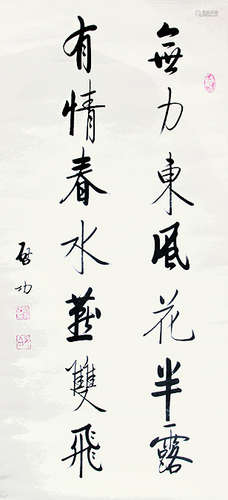 無力東風花半露
有情春水燕雙飛
啓功